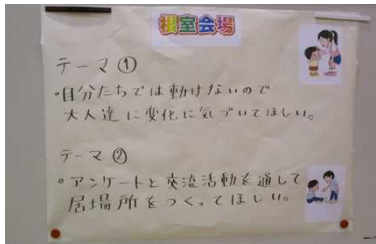 根室会場
テーマ①
・自分たちでは動けないので
大人達に変化に気づいてほしい。
テーマ②
・アンケートと交流活動を通して
居場所をつくってほしい。